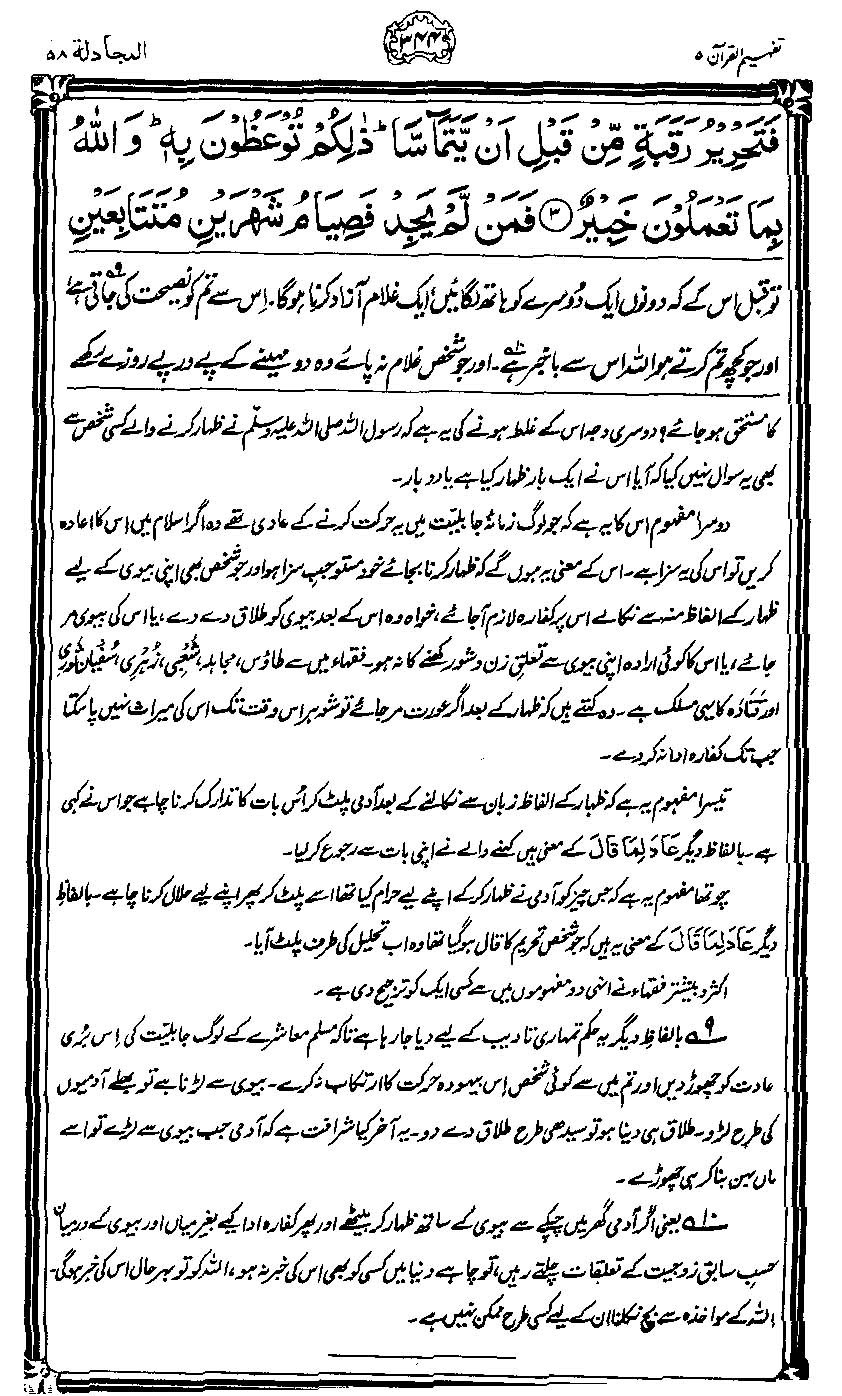 تفہیم القرآن ۵
۳۴۴
المجادلة ۵۸
فَتَحْرِيْرُ رَقَبَةٍ مِّنْ قَبْلِ اَنْ يَّتَمَآسَّا ؕ ذٰلِكُمْ تُوْعَظُوْنَ بِهٖ ؕ وَ اللّٰهُ
بِمَا تَعْمَلُوْنَ خَبِيْرٌ ۳ فَمَنْ لَّمْ يَجِدْ فَصِيَامُ شَهْرَيْنِ مُتَتَابِعَيْنِ
تو قبل اس کے کہ دونوں ایک دُوسرے کو ہاتھ لگائیں، ایک غلام آزاد کرنا ہوگا۔ اِس سے تم کو نصیحت کی جاتی ہے۹
اور جو کچھ تم کرتے ہو اللہ اس سے باخبر ہے۱۰۔ اور جو شخص غلام نہ پائے وہ دو مہینے کے پے در پے روزے رکھے
کا مستحق ہو جائے؟ دوسری وجہ اس کے غلط ہونے کی یہ ہے کہ رسول اللہ صلی اللہ علیہ وسلّم نے ظہار کرنے والے کسی شخص سے
بھی یہ سوال نہیں کیا کہ آیا اس نے ایک بار ظہار کیا ہے یا دو بار۔
دوسرا مفہوم اس کا یہ ہے کہ جو لوگ زمانۂ جاہلیّت میں یہ حرکت کرنے کے عادی تھے وہ اگر اسلام میں اس کا اعادہ
کریں تو اس کی یہ سزا ہے۔ اس کے معنی یہ ہوں گے کہ ظہار کرنا بجائے خود مستوجبِ سزا ہو اور جو شخص بھی اپنی بیوی کے لیے
ظہار کے الفاظ منہ سے نکالے اس پر کفارہ لازم آجائے، خواہ وہ اس کے بعد بیوی کو طلاق دے دے، یا اس کی بیوی مر
جائے، یا اس کا کوئی ارادہ اپنی بیوی سے تعلقِ زن و شو رکھنے کا نہ ہو۔ فقہاء میں سے طاؤس، مجاہد، شَعبِی، زُہری، سُفیان ثوری
اور قَتادہ کا یہی مسلک ہے۔ وہ کہتے ہیں کہ ظہار کے بعد اگر عورت مر جائے تو شوہر اس وقت تک اس کی میراث نہیں پا سکتا
جب تک کفارہ ادا نہ کر دے۔
تیسرا مفہوم یہ ہے کہ ظہار کے الفاظ زبان سے نکالنے کے بعد آدمی پلٹ کر اُس بات کا تدارک کرنا چاہے جو اس نے کہی
ہے۔ بالفاظِ دیگر عَادَ لِمَا قَالَ کے معنی ہیں کہنے والے نے اپنی بات سے رجوع کر لیا۔
چوتھا مفہوم یہ ہے کہ جس چیز کو آدمی نے ظہار کر کے اپنے لیے حرام کیا تھا اسے پلٹ کر پھر اپنے لیے حلال کرنا چاہے۔ بالفاظِ
دیگر عَادَ لِمَا قَالَ کے معنی یہ ہیں کہ جو شخص تحریم کا قائل ہو گیا تھا وہ اب تحلیل کی طرف پلٹ آیا۔
اکثر و بیشتر فقہاء نے انہی دو مفہوموں میں سے کسی ایک کو ترجیح دی ہے۔
۹ بالفاظِ دیگر یہ حکم تمہاری تادیب کے لیے دیا جا رہا ہے تاکہ مسلم معاشرے کے لوگ جاہلیّت کی اِس بُری
عادت کو چھوڑ دیں اور تم میں سے کوئی شخص اِس بیہودہ حرکت کا ارتکاب نہ کرے۔ بیوی سے لڑنا ہے تو بھلے آدمیوں
کی طرح لڑو۔ طلاق ہی دینا ہو تو سیدھی طرح طلاق دے دو۔ یہ آخر کیا شرافت ہے کہ آدمی جب بیوی سے لڑے تو اسے
ماں بہن بنا کر ہی چھوڑے۔
۱۰ یعنی اگر آدمی گھر میں چپکے سے بیوی کے ساتھ ظہار کر بیٹھے اور پھر کفارہ ادا کیے بغیر میاں اور بیوی کے درمیان
حسبِ سابق زوجیت کے تعلقات چلتے رہیں، تو چاہے دنیا میں کسی کو بھی اس کی خبر نہ ہو، اللہ کو تو بہر حال اس کی خبر ہوگی۔
اللہ کے مواخذہ سے بچ نکلنا ان کے لیے کسی طرح ممکن نہیں ہے۔